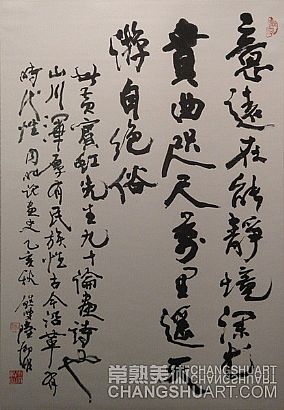 意遠在能靜境深尤
貴曲咫尺萬里遙天
游自絕俗
此黃賓虹先生九十論畫詩也
山川渾厚有民族性古今沿革有
時代性 畫史 乙亥秋
常熟美術 CHANGSHUART
CHANGSHUART.COM